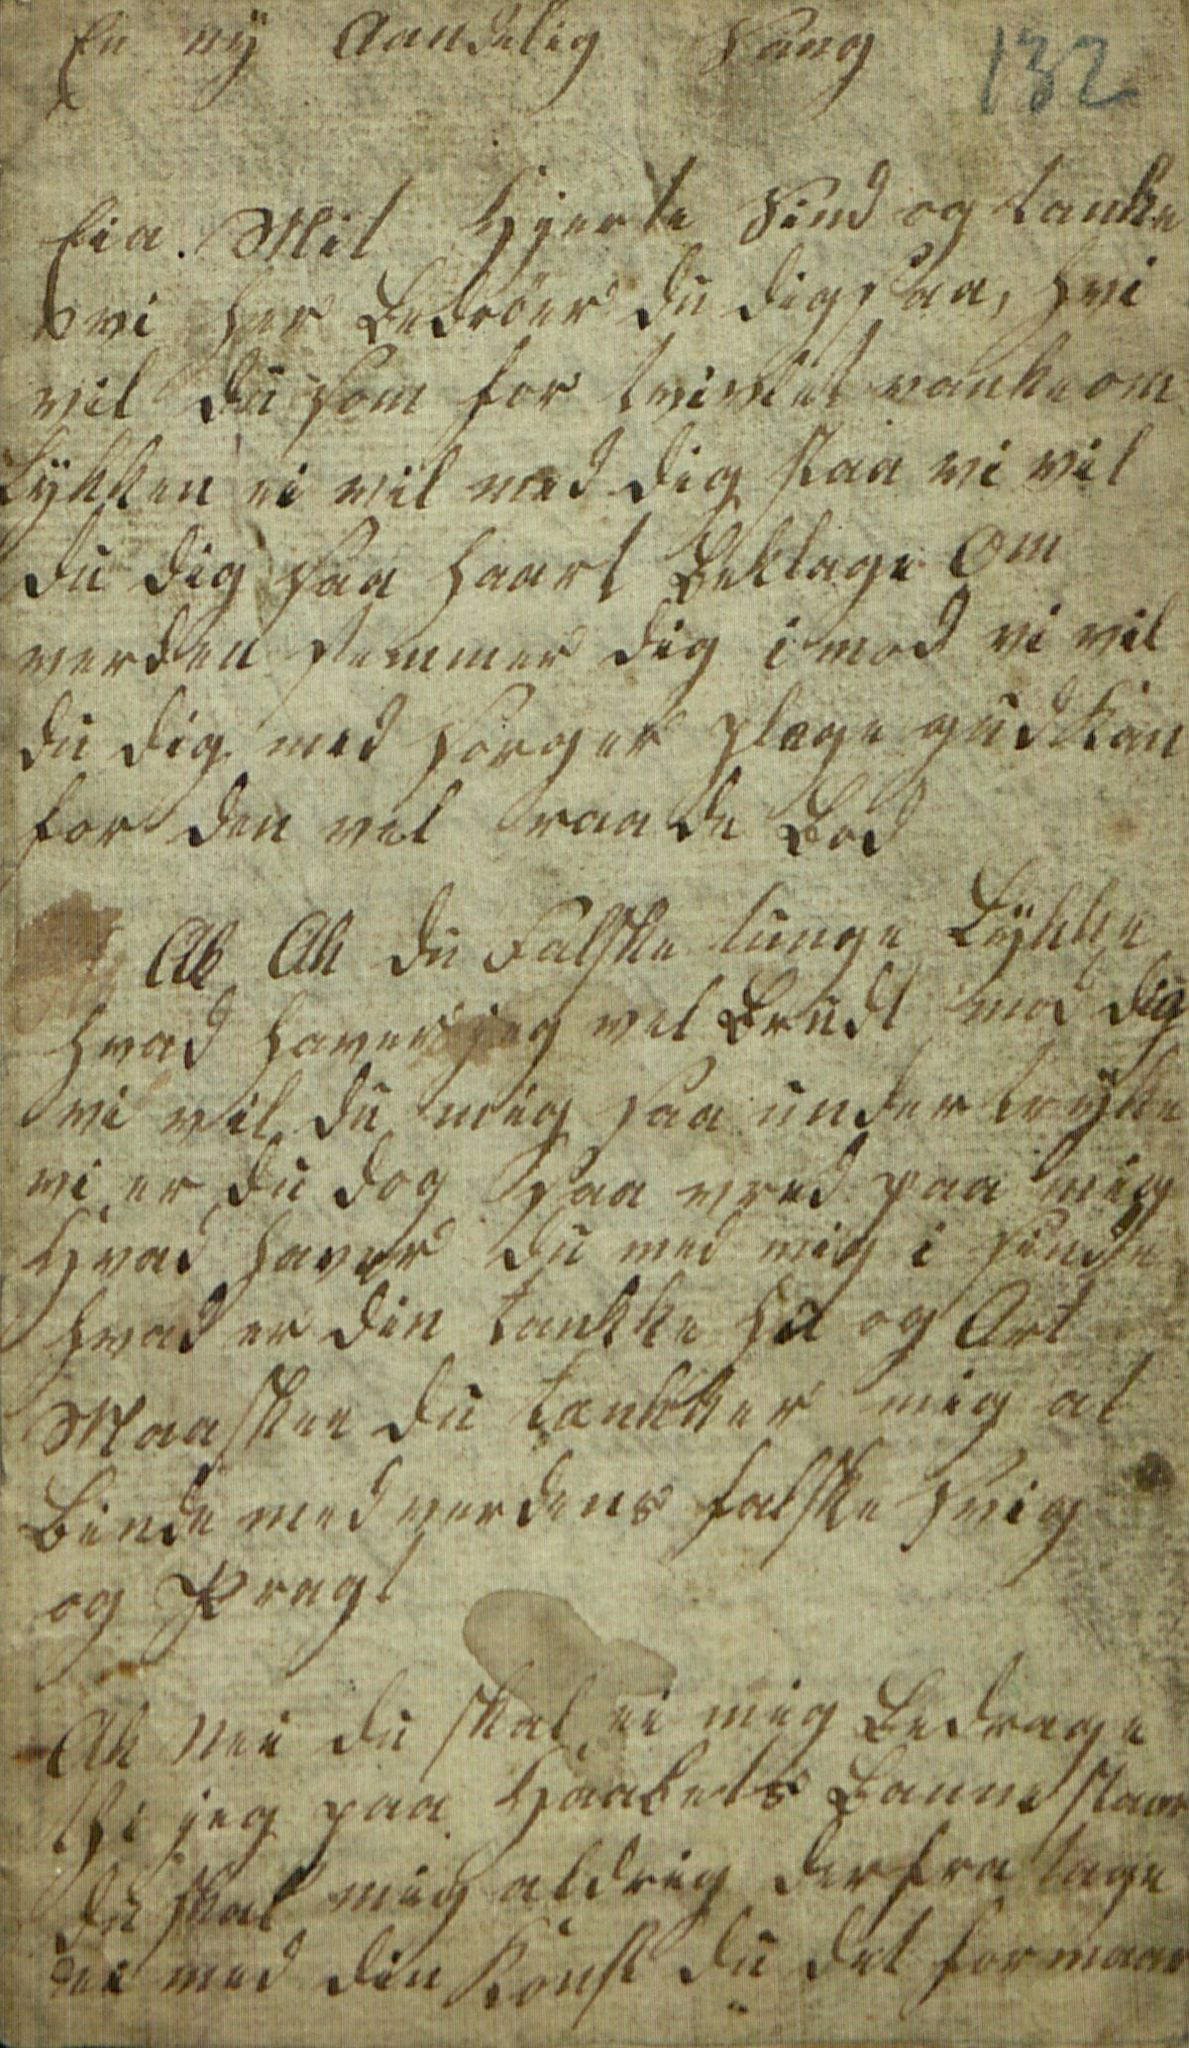 En ny Aandelig Sang
132
Eia. Mit Hjerte Sind og tanke
hvi har Bedröer du dig saa, hvi
vil du som for tvivlet vanke om
Lykken ei vil med dig staa vi vil
du dig saa haart Beklage Om
verden stemmer dig imod vi vil
du dig med sorger plage gud kan
for den vel raade Bod
Ak Ak du Falske tunge Lykke
hvad haver jeg vel Brudt mod dig
vi vil du mig saa undertrykke
vi er du dog saa vred paa mig
Hvad haver du med mig i sinde
hvad er din tankke og Art
Maaskee du tænkker mig at
Binde med verdens falske svig
og Pragt
Ak Nei du skal ei mig Bedrage
thi jeg paa Haabets Banne staar
du skal mig aldrig derfra tage
ei med din Konst du det formaar